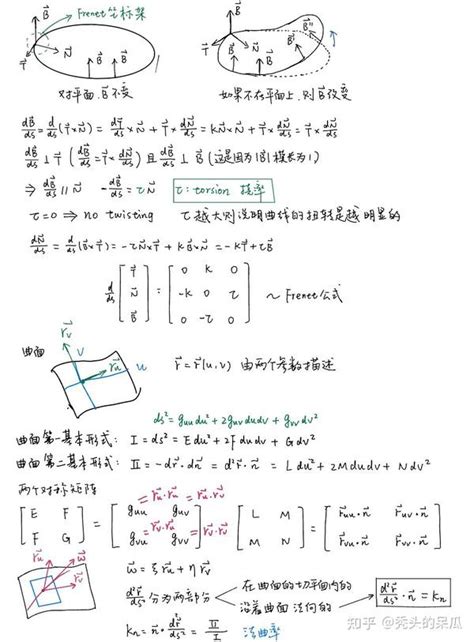 Frenet 坐标架
B⃗
T⃗ N⃗ B⃗ B⃗
对平面, B⃗ 不变
B⃗
T⃗ N⃗ B⃗ B⃗' B⃗''
如果不在平面上, 则 B⃗ 改变
dB⃗/ds = d/ds (T⃗×N⃗) = dT⃗/ds × N⃗ + T⃗ × dN⃗/ds = kN⃗×N⃗ + T⃗ × dN⃗/ds = T⃗ × dN⃗/ds
dB⃗/ds ⊥ T⃗ (dB⃗/ds = T⃗ × dN⃗/ds) 且 dB⃗/ds ⊥ B⃗ (这是因为 |B⃗| 模长为1)
⇒ dB⃗/ds // N⃗ -dB⃗/ds = τN⃗ τ: torsion 挠率
τ=0 ⇒ no twisting τ越大则说明曲线的扭转是越明显的
dN⃗/ds = d/ds (B⃗×T⃗) = -τN⃗×T⃗ + kB⃗×N⃗ = -kT⃗+τB⃗
d/ds [T⃗ N⃗ B⃗] = [0 k 0; -k 0 τ; 0 -τ 0] ~ Frenet公式
曲面 r⃗v v r⃗u u
r⃗ = r⃗(u,v) 由两个参数描述
ds² = guu du² + 2guv dudv + gvv dv²
曲面第一基本形式: I = ds² = Edu² + 2Fdudv + Gdv²
曲面第二基本形式: II = -dr⃗·dn⃗ = d²r⃗·n⃗ = Ldu² + 2Mdudv + Ndv²
两个对称矩阵
=r⃗u·r⃗u =r⃗u·r⃗v
[E F; F G] = [guu guv; guv gvv] [L M; M N] = [r⃗uu·n⃗ r⃗uv·n⃗; r⃗uv·n⃗ r⃗vv·n⃗]
=r⃗v·r⃗u r⃗v·r⃗v
r⃗u w⃗ r⃗v
w⃗ = ξr⃗u + ηr⃗v
d²r⃗/ds² 分为两部分
在曲面的切平面内的
沿着曲面法向的 → d²r⃗/ds²·n⃗ = kn
kn = n⃗·d²r⃗/ds² = II/I 法曲率
知乎 @秃头的呆瓜